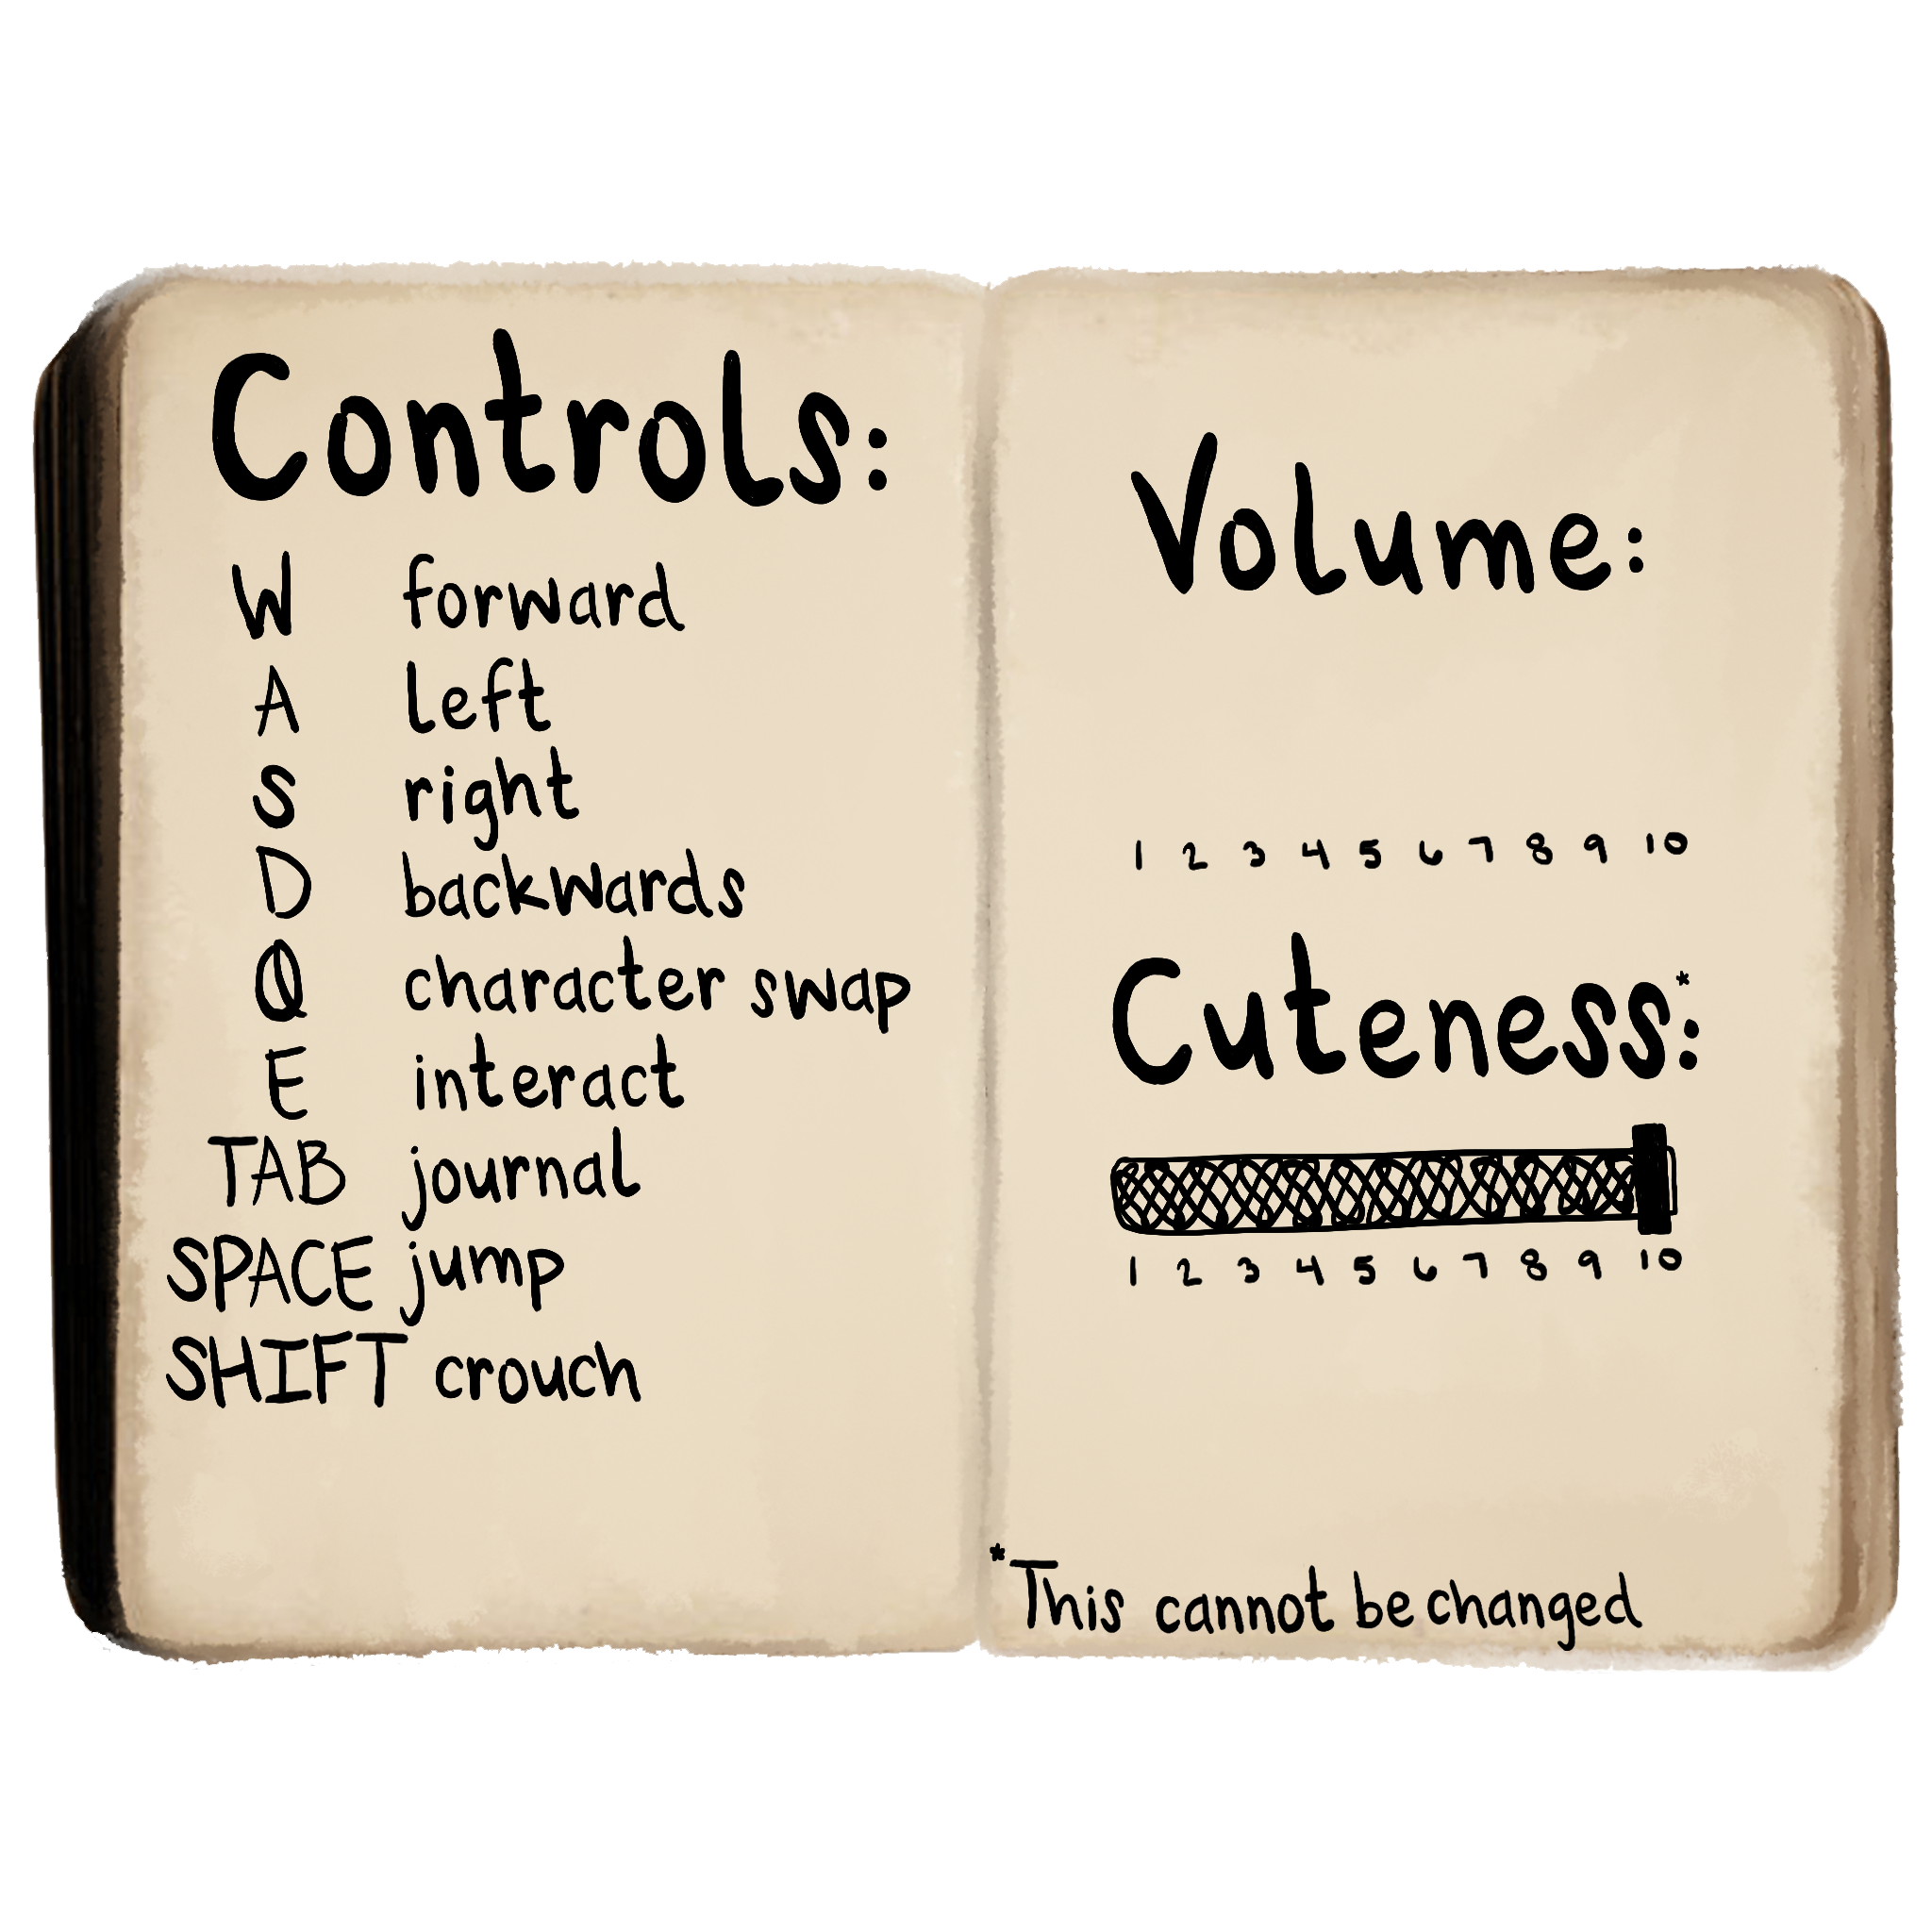 Controls:
W forward
A left
S right
D backwards
Q character swap
E interact
TAB journal
SPACE jump
SHIFT crouch
Volume:
1 2 3 4 5 6 7 8 9 10
Cuteness*:
1 2 3 4 5 6 7 8 9 10
*This cannot be changed